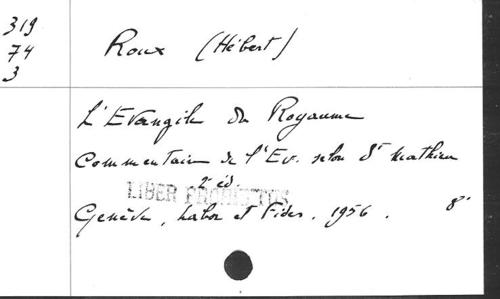 319
74
3
Roux (Hébert)
L'Evangile du Royaume
Commentaire de l'Ev. selon St Mathieu
2e éd.
LIBER PROHIBITUS
Genève, Labor et Fides. 1956. 8°